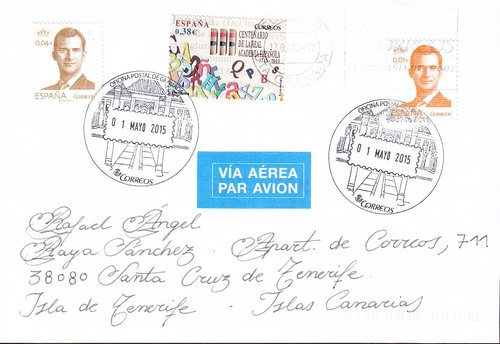 0,04€
ESPAÑA CORREOS
ESPAÑA
0,38€
CORREOS
CENTENARIO
DE LA REAL
ACADEMIA ESPAÑOLA
1713-2013
0,01€
ESPAÑA CORREOS
OFICINA POSTAL DE
01 MAYO 2015
CORREOS
OFICINA POSTAL
01 MAYO 2015
CORREOS
VÍA AÉREA
PAR AVION
Rafael Ángel
Raya Sánchez. Apart. de Correos, 711
38080 - Santa Cruz de Tenerife
Isla de Tenerife - Islas Canarias